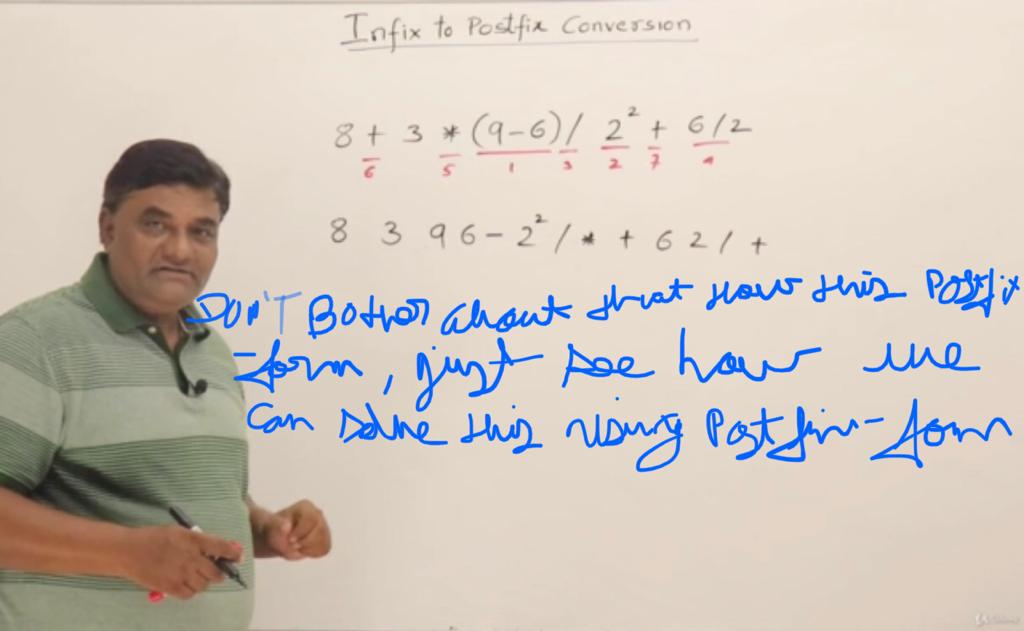 Infix to Postfix Conversion
8 + 3 * (9-6) / 2² + 6/2
6 5 1 3 2 7 4
8 3 9 6 - 2² / * + 6 2 / +
DON'T Bother about that how this Postfix
-form, just see how we
can solve this using Postfix-form